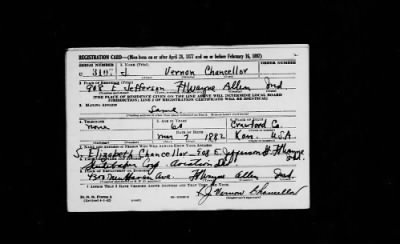 REGISTRATION CARD—(Men born on or after April 28, 1877 and on or before February 16, 1897)
SERIAL NUMBER 1. NAME (Print) ORDER NUMBER
J Vernon Chancellor
(First) (Middle) (Last)
2. PLACE OF RESIDENCE (Print)
908 E Jefferson Ft Wayne Allen Ind
(THE PLACE OF RESIDENCE GIVEN ON THE LINE ABOVE WILL DETERMINE LOCAL BOARD
JURISDICTION; LINE 2 OF REGISTRATION CERTIFICATE WILL BE IDENTICAL)
3. MAILING ADDRESS
Same
4. TELEPHONE 5. AGE IN YEARS 6. PLACE OF BIRTH
none 60 Crawford Co.
DATE OF BIRTH
1882 Kan. USA
7. NAME AND ADDRESS OF PERSON WHO WILL ALWAYS KNOW YOUR ADDRESS
Elizabeth Chancellor - 908 E Jefferson St Ft Wayne Ind.
8. EMPLOYER'S NAME AND ADDRESS
Studebaker Corp - Aviation
9. PLACE OF EMPLOYMENT OR BUSINESS
Ave Ft Wayne Allen Ind
I AFFIRM THAT I HAVE VERIFIED ABOVE ANSWERS AND THAT THEY ARE TRUE.
Vernon Chancellor